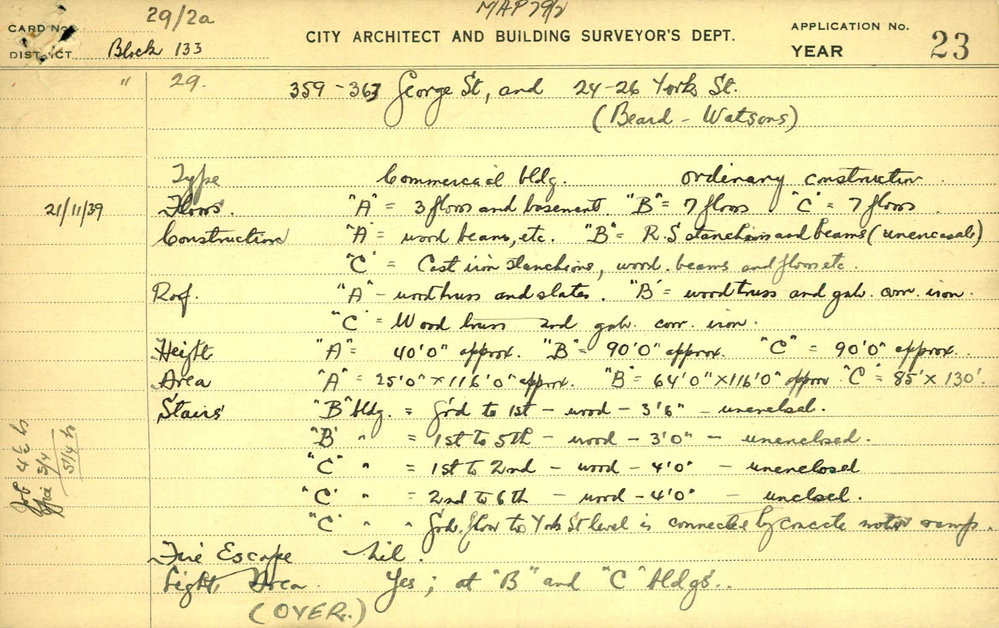 29/2a MAP 29/2
CARD No. CITY ARCHITECT AND BUILDING SURVEYOR'S DEPT. APPLICATION No.
DISTRICT Block 133 YEAR 23
" 29. 359-363 George St, and 24-26 York St.
(Beard - Watsons)
Type Commercial bldg. ordinary construction
21/11/39 Floors. "A" = 3 floors and basement "B" = 7 floors "C" = 7 floors
Construction "A" = wood beams, etc. "B" = R.S stancheons and beams (unencased)
"C" = Cast iron stancheons, wood beams and floors etc.
Roof. "A" - wood truss and slates. "B" = wood truss and galv. corr. iron.
"C" = Wood truss and galv. corr. iron.
Height "A" = 40'0" approx. "B" = 90'0" approx. "C" = 90'0" approx.
Area "A" = 25'0" x 116'0" approx. "B" = 64'0" x 116'0" approx "C" = 85' x 130'.
Stairs "B" bldg. = Grd to 1st - wood - 3'6" - unenclosed.
"B" " = 1st to 5th - wood - 3'0" - unenclosed.
"C" " = 1st to 2nd - wood - 4'0" - unenclosed
"C" " = 2nd to 6th - wood - 4'0" - unclosed.
"C" " Grd. floor to York St level is connected by concrete motor ramp.
Fire Escape Nil.
Light Area Yes; at "B" and "C" bldgs.
(OVER.)
Job 4½ hs
Office 3/4
5¼ hs